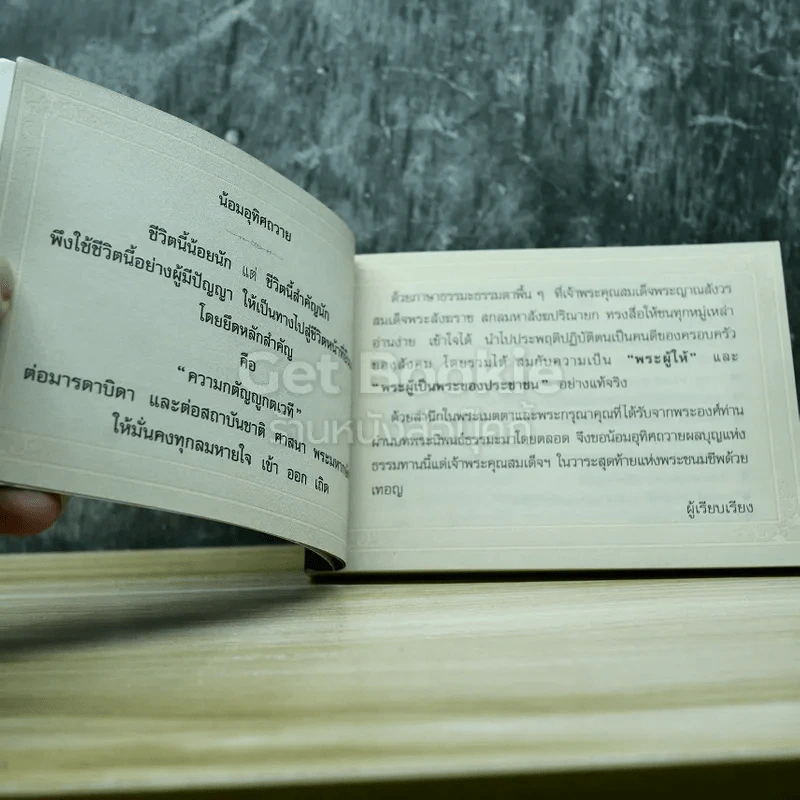 น้อมอุทิศถวาย
ชีวิตนี้น้อยนัก แต่ ชีวิตนี้สำคัญนัก
พึงใช้ชีวิตนี้อย่างผู้มีปัญญา ให้เป็นทางไปสู่ชีวิตหน้าที่
โดยยึดหลักสำคัญ
คือ
"ความกตัญญูกตเวที"
ต่อมารดาบิดา และต่อสถาบันชาติ ศาสนา
ให้มั่นคงทุกลมหายใจ เข้า ออก เถิด
ด้วยภาษาธรรมะธรรมดาพื้น ๆ ที่เจ้าพระคุณสมเด็จพระญาณสังวร
สมเด็จพระสังฆราช สกลมหาสังฆปริณายก ทรงสื่อให้ชนทุกหมู่เหล่า
อ่านง่าย เข้าใจได้ นำไปประพฤติปฏิบัติตนเป็นคนดีของครอบครัว
ของสังคม โดยรวมได้ สมกับความเป็น "พระผู้ให้" และ
"พระผู้เป็นพระของประชาชน" อย่างแท้จริง
ด้วยสำนึกในพระเมตตาและพระกรุณาคุณที่ได้รับจากพระองค์ท่าน
ผ่านบทพระนิพนธ์ธรรมะมาโดยตลอด จึงขอน้อมอุทิศถวายผลบุญแห่ง
ธรรมทานนี้แด่เจ้าพระคุณสมเด็จฯ ในวาระสุดท้ายแห่งพระชนมชีพด้วย
เทอญ
ผู้เรียบเรียง
Get Bookie
ร้านหนังสือบุ๊คกี้